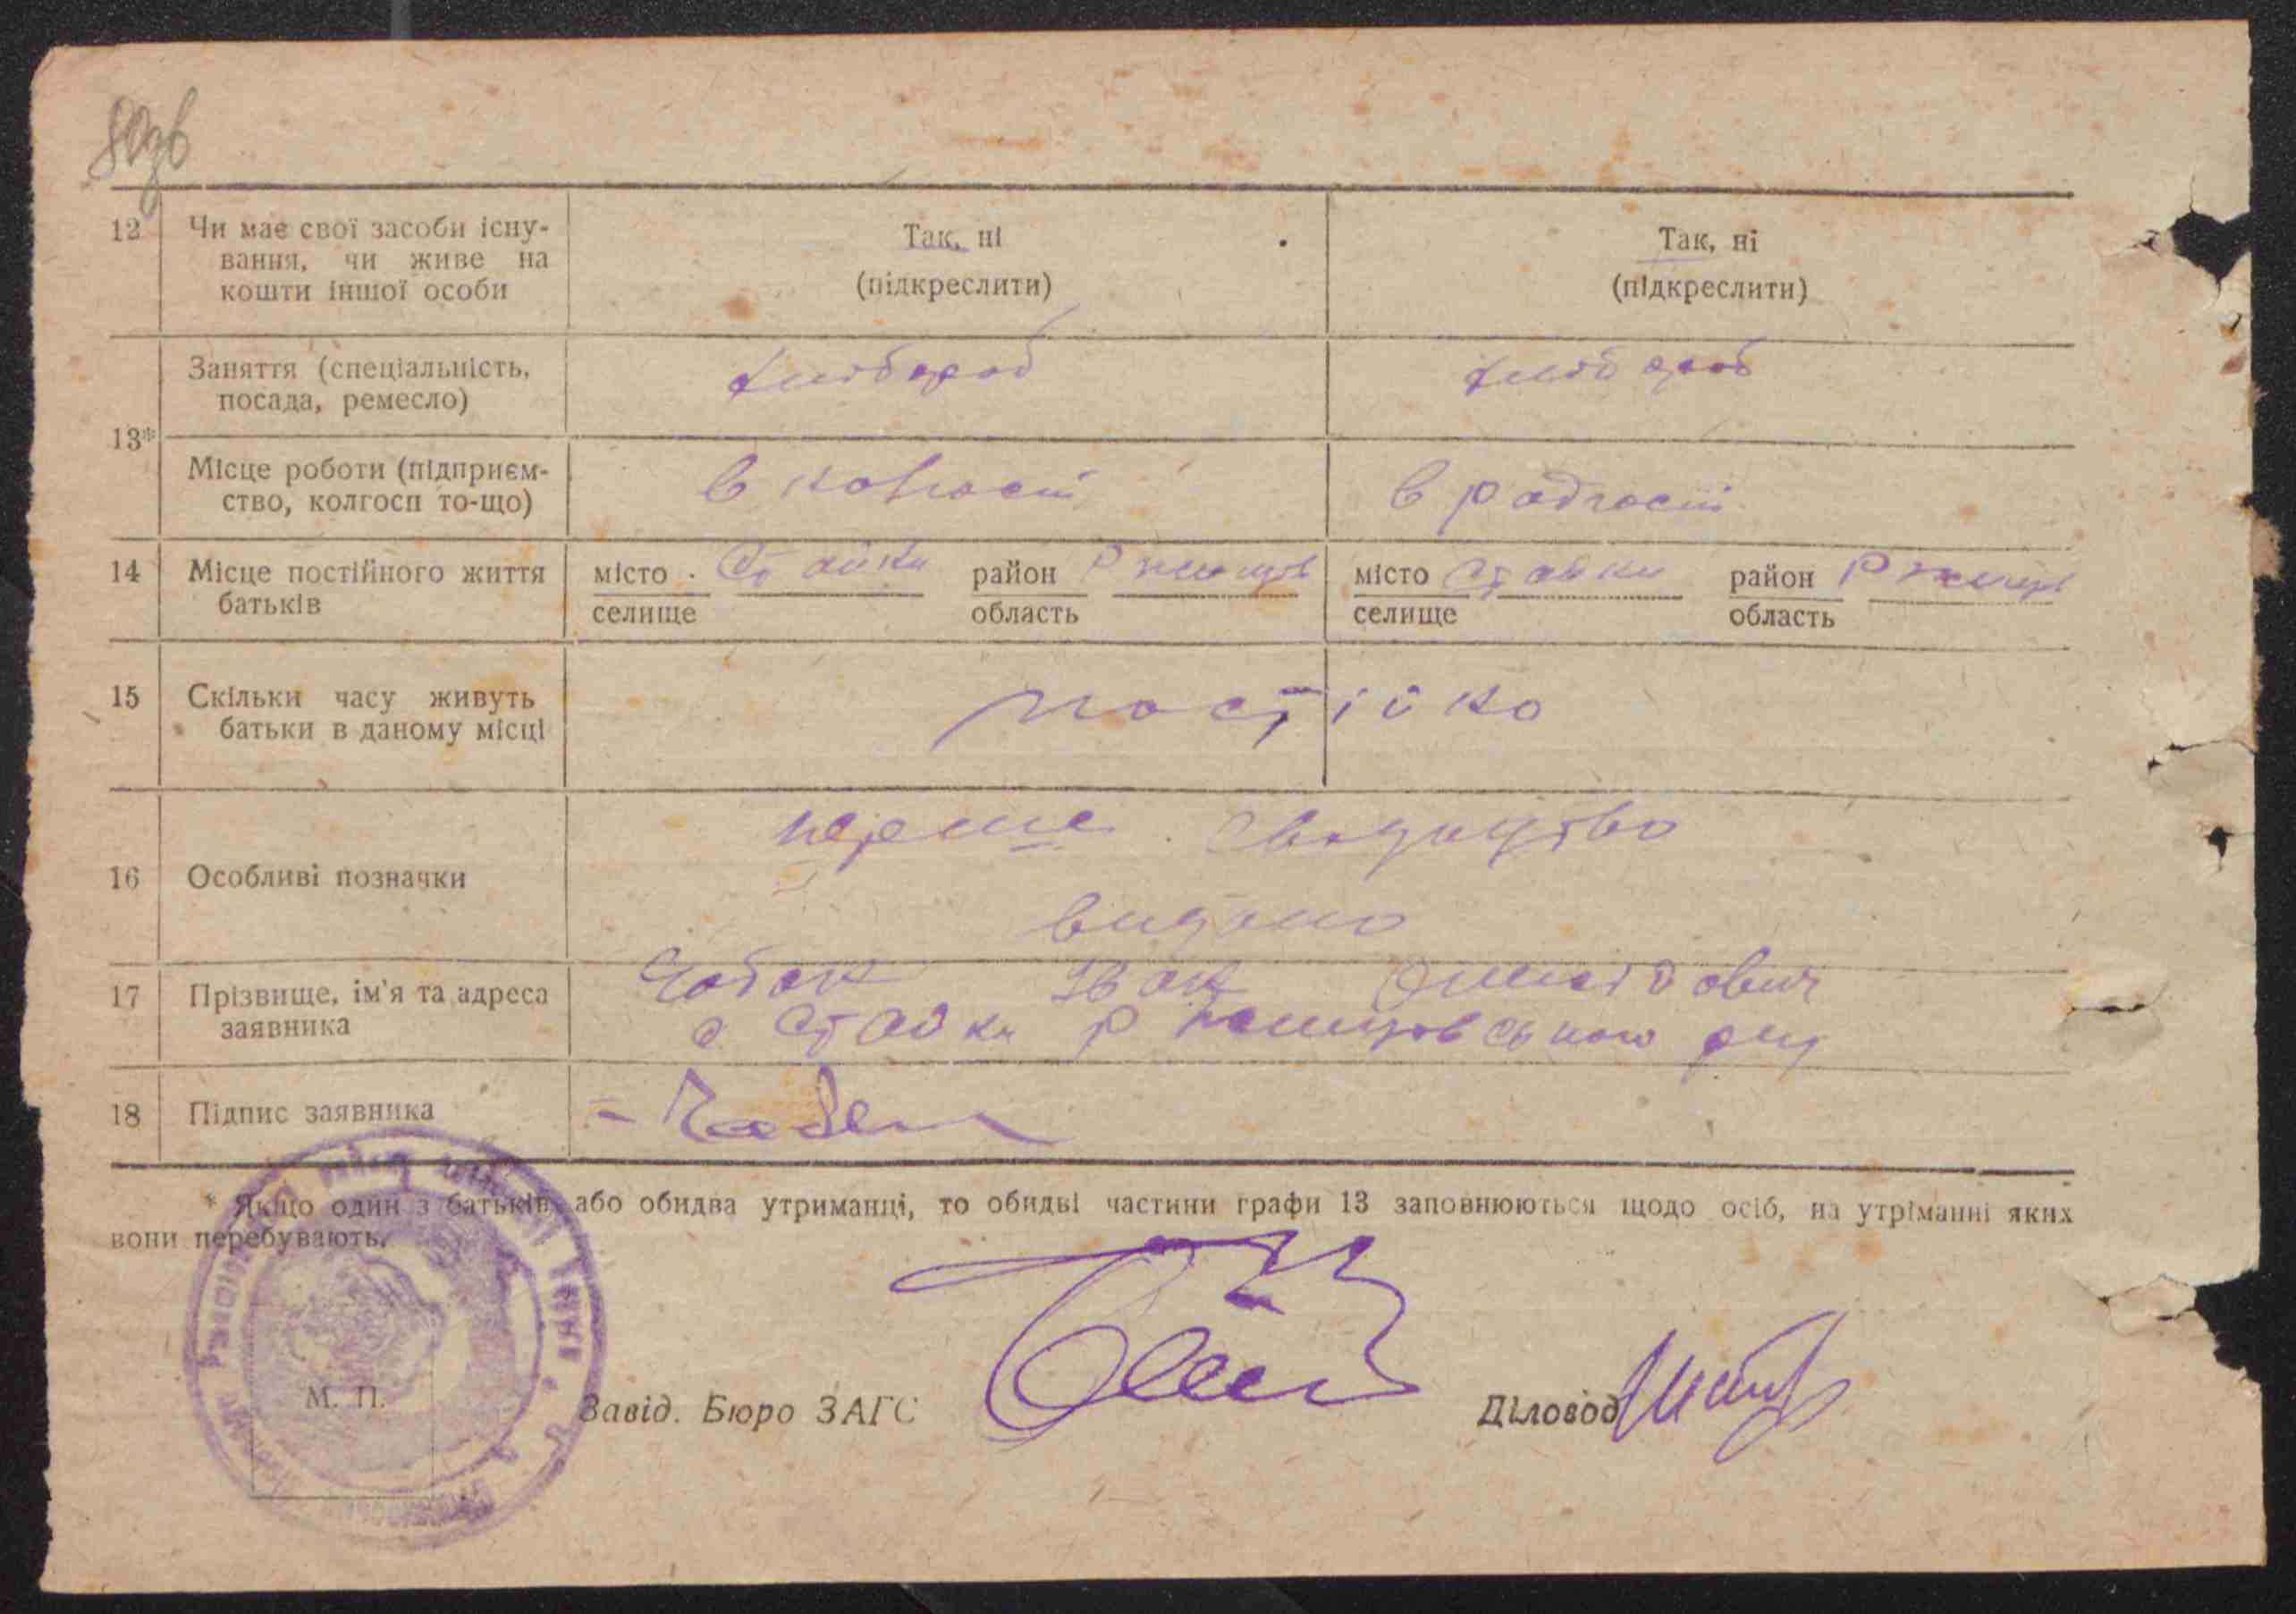 80зв
12 Чи має свої засоби існу-
вання, чи живе на
кошти іншої особи
Так, ні
(підкреслити)
Так, ні
(підкреслити)
13*
Заняття (спеціальність,
посада, ремесло)
хлібороб
хлібороб
Місце роботи (підприєм-
ство, колгосп то-що)
в колгоспі
в радгоспі
14 Місце постійного життя
батьків
місто Стайки район Ржищів
селище область
місто Стайки район Ржищів
селище область
15 Скільки часу живуть
батьки в даному місці
постійно
16 Особливі позначки
перше свидоцтво
видано
17 Прізвище, ім'я та адреса
заявника
Чабан Іван
с Стайки Ржищівського рну
18 Підпис заявника
* Якщо один з батьків або обидва утриманці, то обидві частини графи 13 заповнюються щодо осіб, на утріманні яких
вони перебувають.
М. П.
Завід. Бюро ЗАГС
Діловод